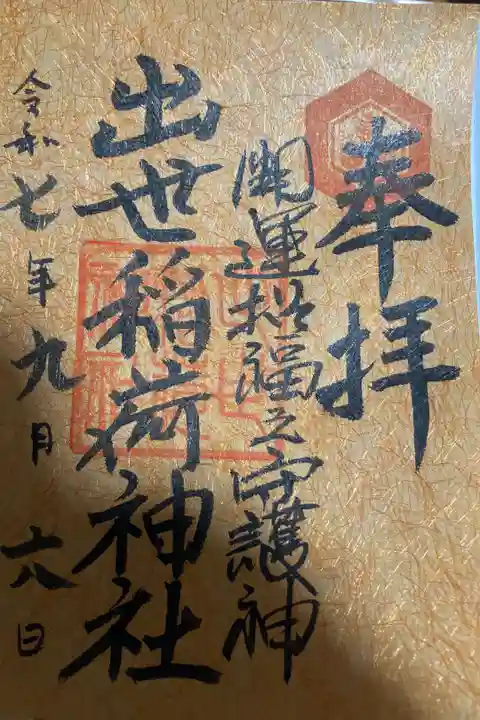 奉拝
開運招福之守護神
出世稲荷神社
令和七年九月十八日